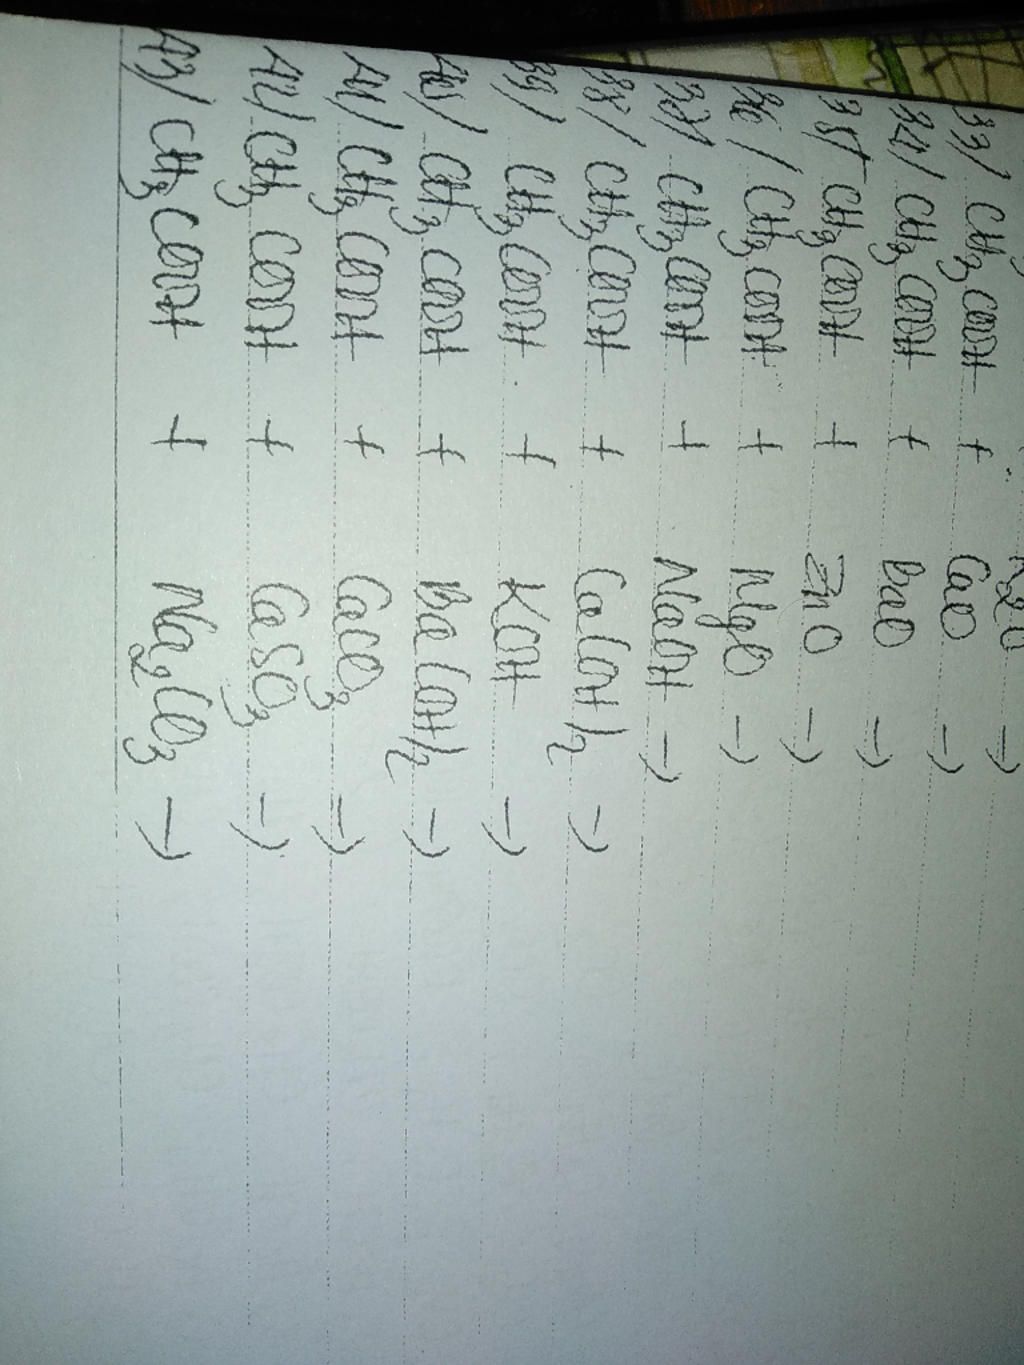 33/ CH3COOH + CaO →
34/ CH3COOH + BaO →
35/ CH3COOH + ZnO →
36/ CH3COOH + MgO →
37/ CH3COOH + NaOH →
38/ CH3COOH + Ca(OH)2 →
39/ CH3COOH + KOH →
40/ CH3COOH + Ba(OH)2 →
41/ CH3COOH + CaCO3 →
42/ CH3COOH + CaSO3 →
43/ CH3COOH + Na2CO3 →